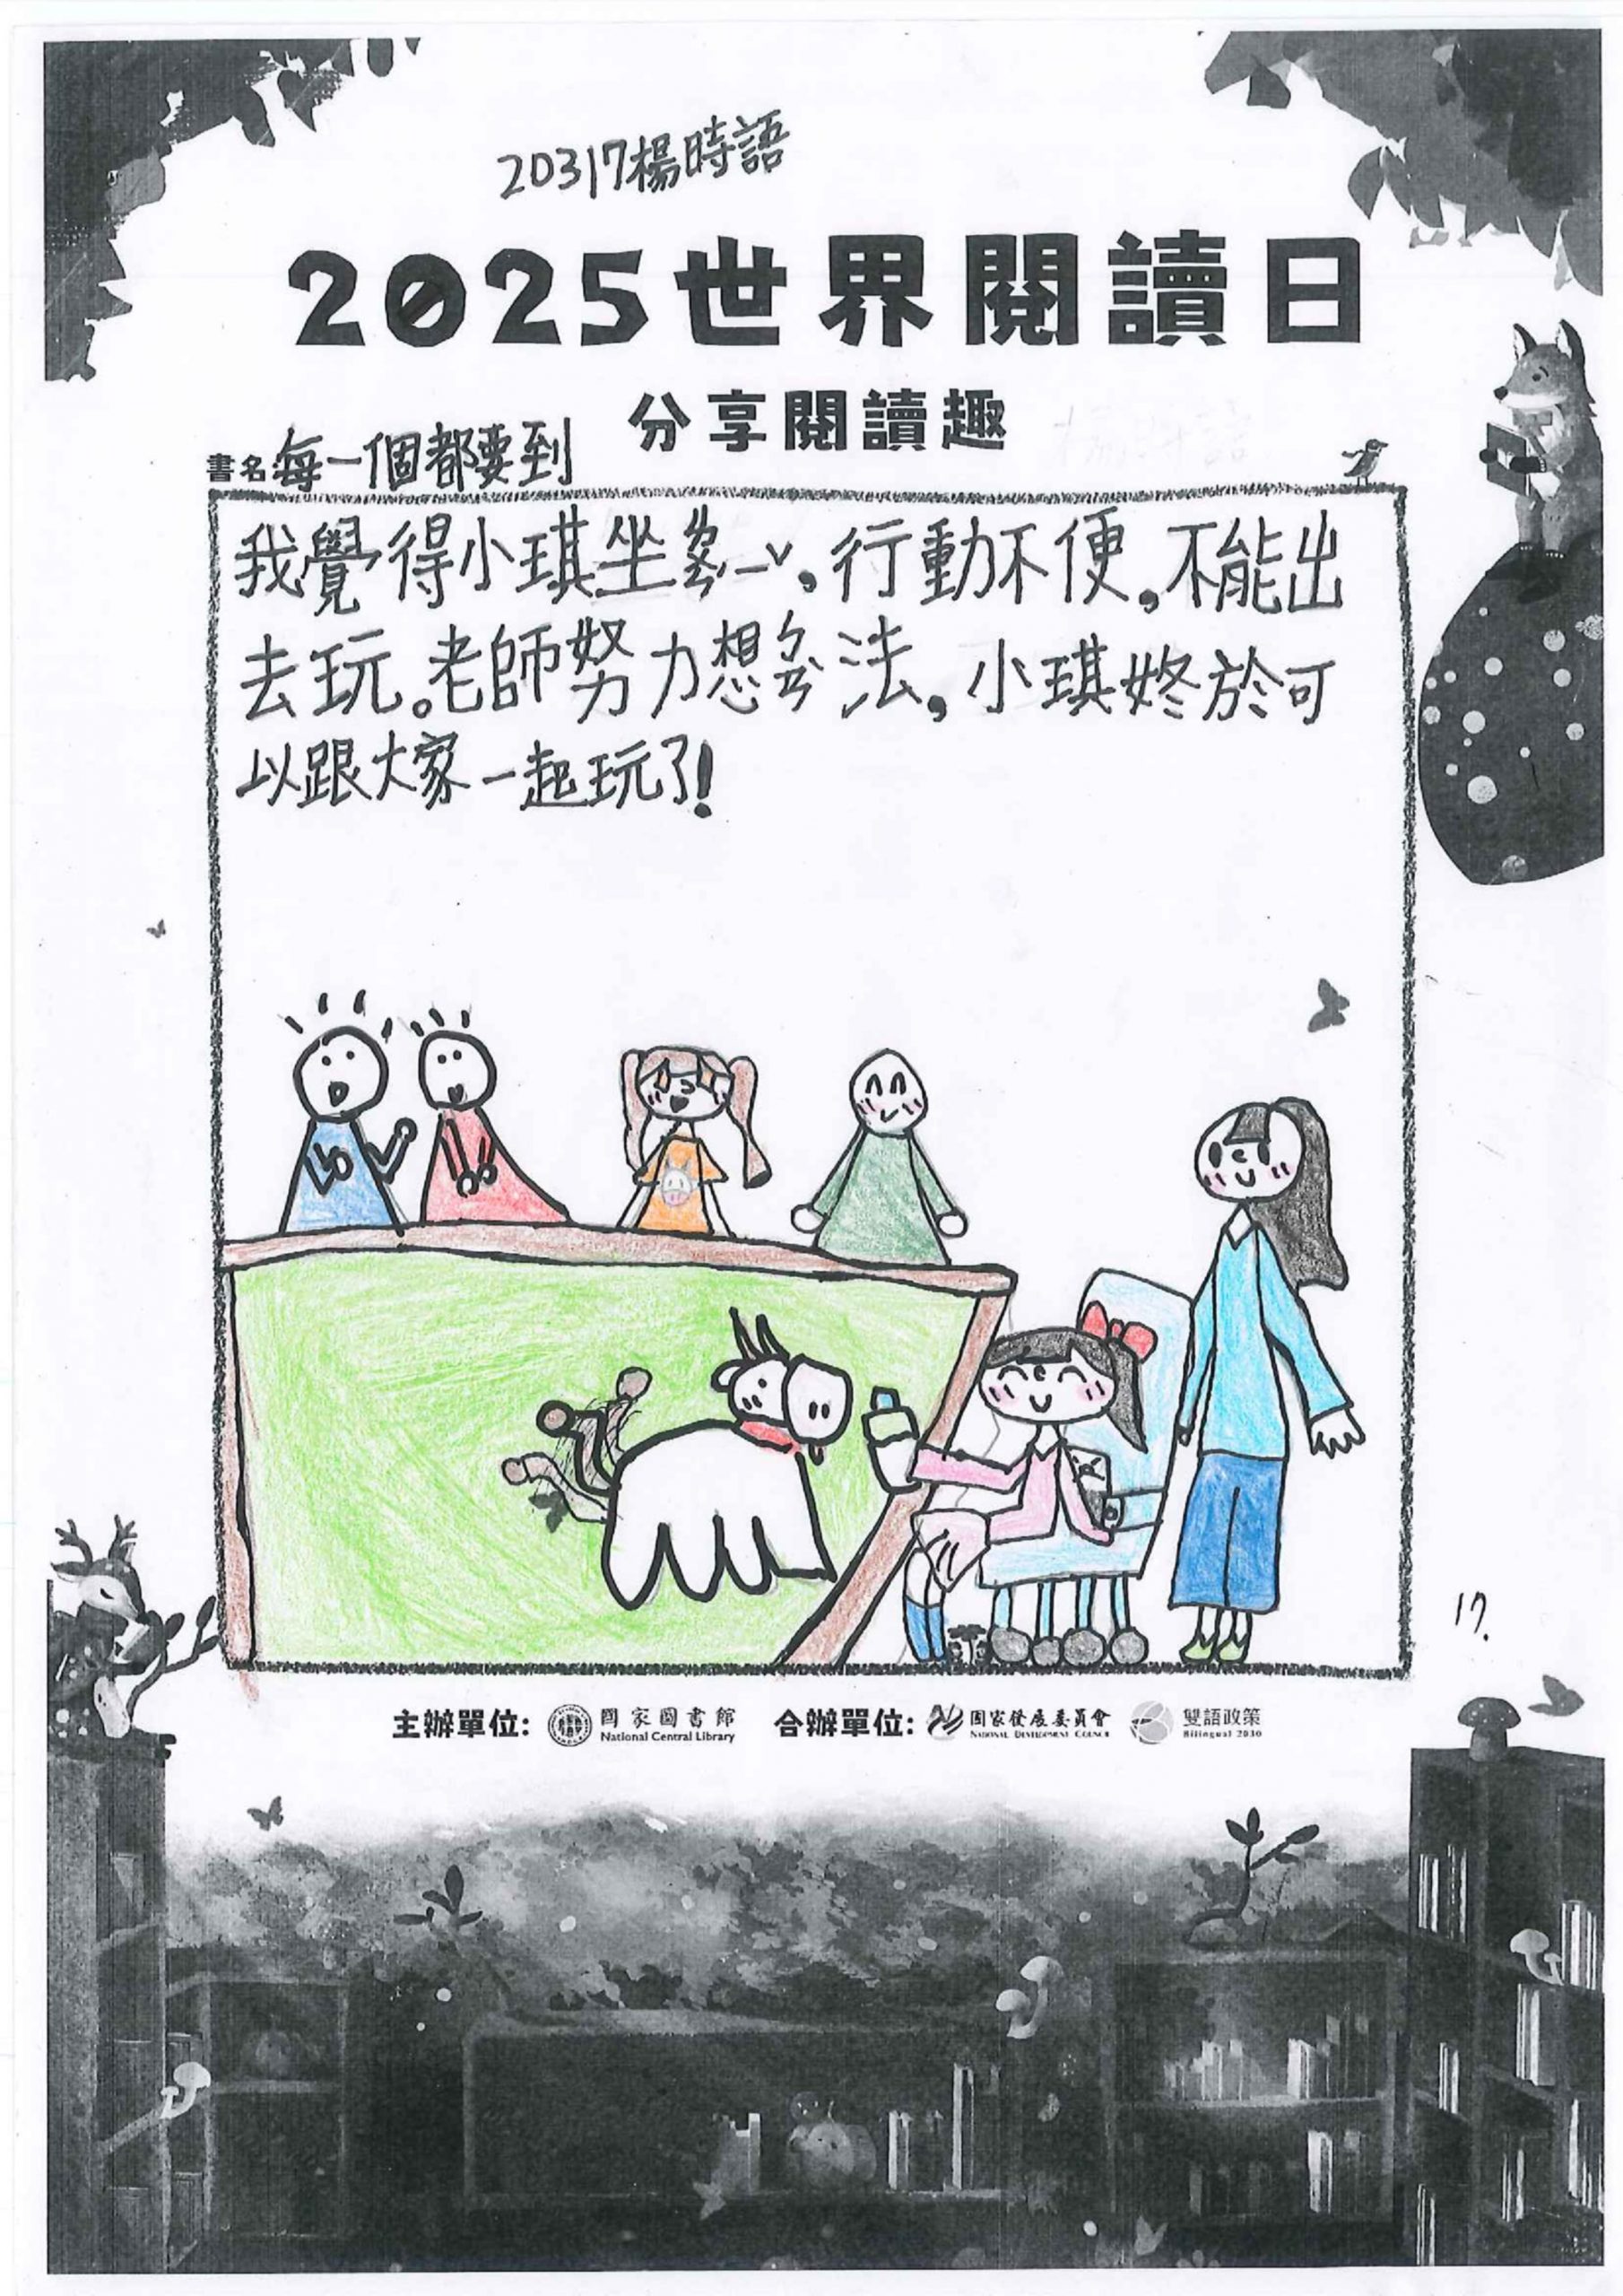 20317楊時語
2025世界閱讀日
分享閱讀趣
書名:每一個都要到
我覺得小琪坐ㄌㄨㄣˊㄧˇ,行動不便,不能出
去玩。老師努力想ㄅㄢˋ法,小琪終於可
以跟大家一起玩了!
17.
主辦單位: 國家圖書館 National Central Library 合辦單位: 國家發展委員會 NATIONAL DEVELOPMENT COUNCIL 雙語政策 Bilingual 2030